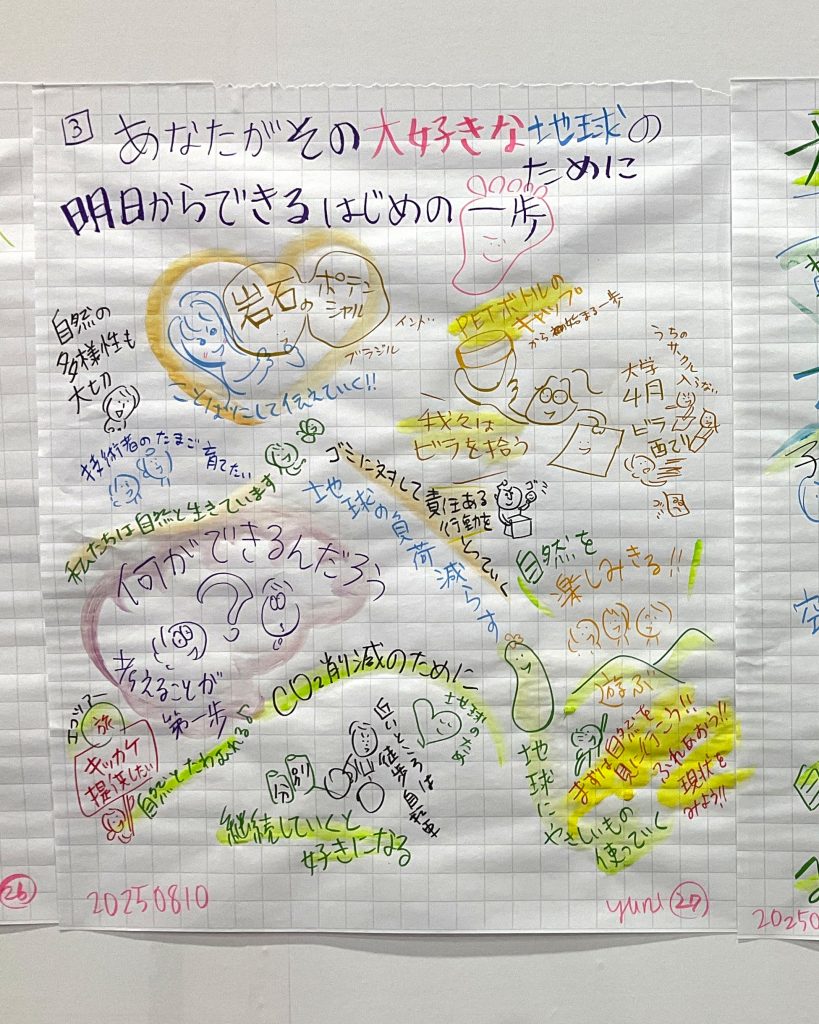 3 あなたがその大好きな地球の
ために
明日からできるはじめの一歩
岩石の
ポテン
シャル
インド
ブラジル
自然の
多様性も
大切
ことばにして伝えていく!!
技術者のたまご育てたい
私たちは自然と生きています
PETボトルの
キャップ。
から始まる一歩
我々は
ビラを拾う
大学
4月
ビラ
配り
うちの
サークル
入らない
ゴミに対して
責任ある
行動を
とっていく
ゴミ
地球の負荷減らす
自然を
楽しみきる!!
遊ぶ
何ができるんだろう
?
考えることが
第一歩
CO2削減のために
エコツアー
旅
キッカケ
提供したい
自然とたわむれる
分別
近いところは
徒歩自転車
地球のため
継続していくと
好きになる
地球に
やさしいもの
使っていく
まずは自然を
見に行こう!!
ふれあおう!!
現状を
みよう!!
20250810
yuni 27
26
20250